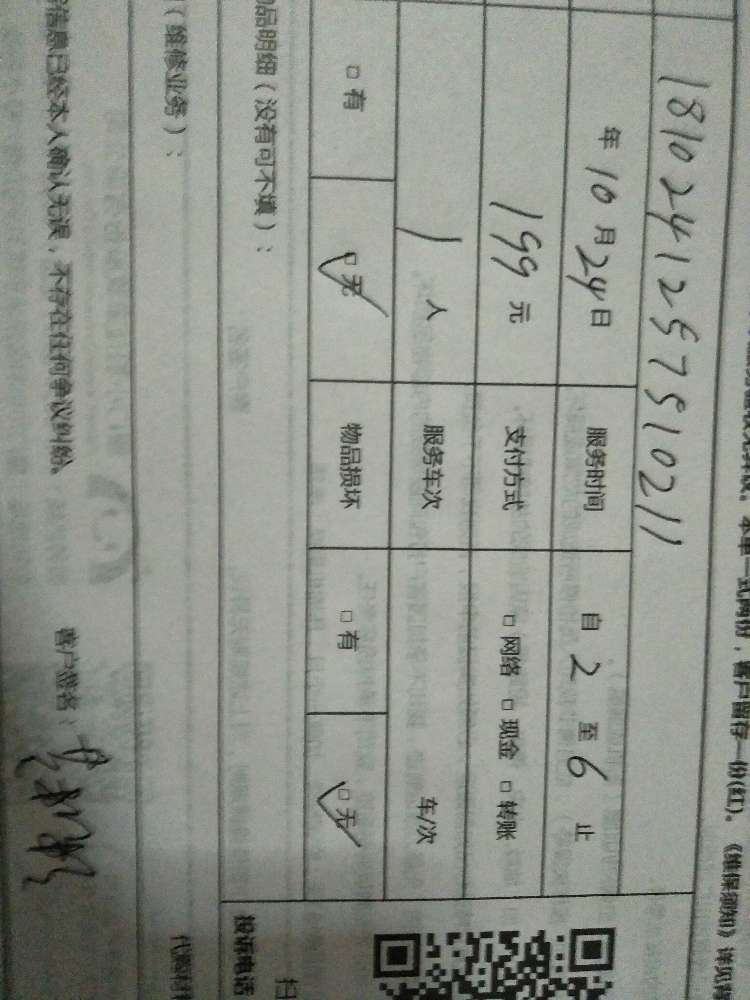 本单一式两份，客户留存一份(红)。《维保须知》详见背
1810241257510211
年 10 月 24 日 服务时间 自 2 至 6 止
199 元 支付方式 □ 网络 □ 现金 □ 转账
1 人 服务车次 车/次
□ 有 □ 无 物品损坏 □ 有 □ 无
品明细（没有可不填）：
（维修业务）：
信息已经本人确认无误，不存在任何争议纠纷。 客户签名：
投诉电话
扫